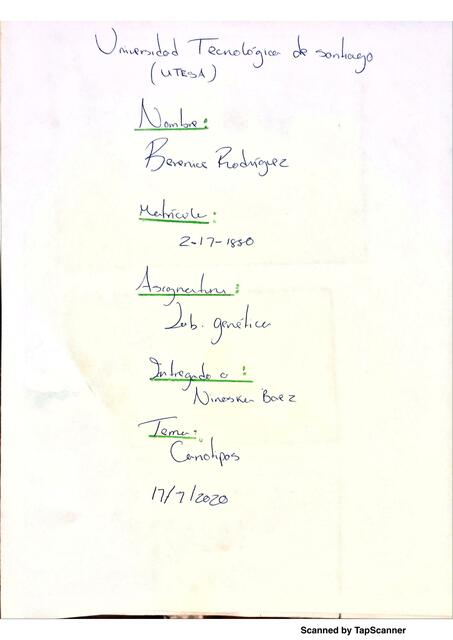 Universidad Tecnológica de santiago
(UTESA)
Nombre:
Berenice Rodríguez
Matrícula:
2-17-1850
Asignatura:
Lab. genética
Entregado a:
Nineska Baez
Tema:
Cariotipos
17/7/2020
Scanned by TapScanner